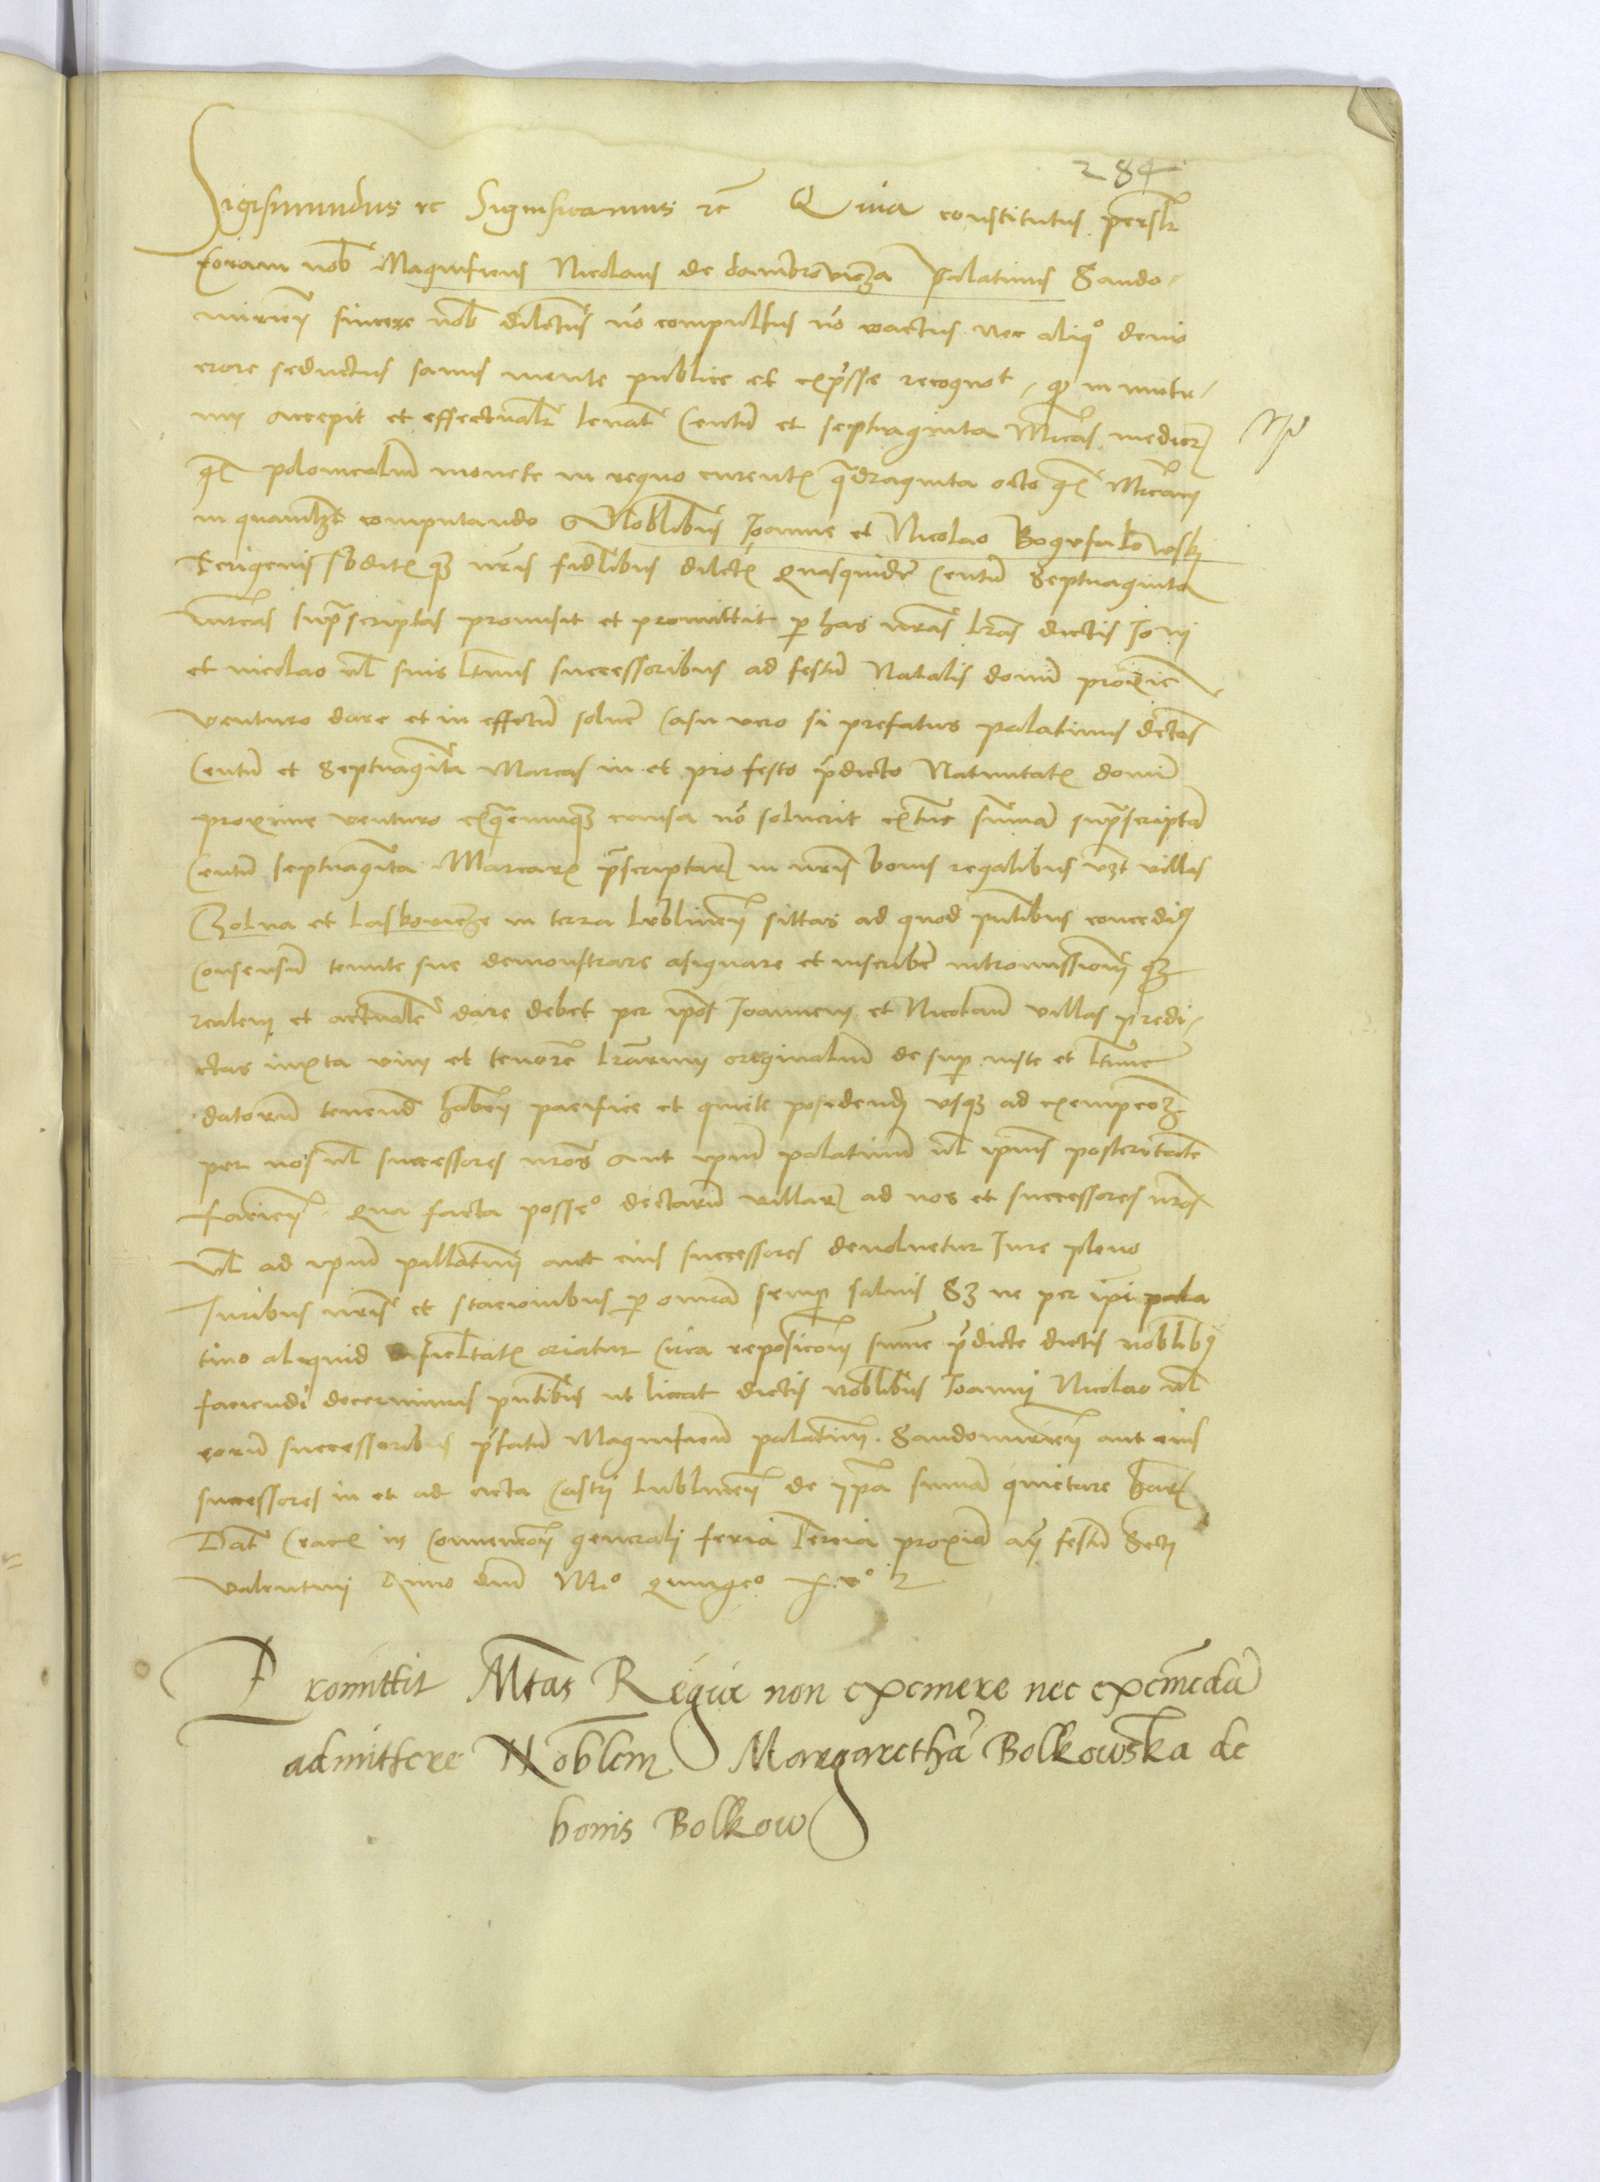 284
Sigismundus rc Significamus rc Quia constitutus personalr
coram nob Magnificus Nicolaus de dambrovicza Palatinus Sando-
miricn sincere nob dilectus no compulsus no coactus nec aliqo devio
erore seductus sanus mente publice et expsse recognot qz in mutu-
um accepit et effectualr levat Centu et septuaginta Mrcas medior
gr polonicaliu monete in regno curentis qdraginta octo gr Mrcam
in quamlzt computando Noblibus Joanne et Nicolao Bogusalowsky
Terigenis sbditis qz nris fidlibus dilectis quasquidem Centu Septuaginta
Mrcas supscriptas promisit et promittit p has nras lras dictis Joni
et nicolao ul suis ltimis successoribus ad festu Natalis domi proxime
venturo dare et in effectu solvere Casu vero si prefatus palatinus dctas
Centu et Septuaginta Marcas in et pro festo pdicto Nativitatis domi
proxime venturo exqcumqz causa no solverit extunc sumam supscripta
Centu septuaginta Marcar pscriptar in nris bonis regalibus vzt villas
Czolna et Laskovicze in terra Lublinen sittas ad quod pntibus concedim
consensum tenute sue demonstrare asignare et inscribere intromissionem qz
realem et actuale dare debet per ipos Joannem et Nicolaum villas predi-
ctas iuxta vim et tenore lrarum originaliu desup iuste et ltime
datorum tenend haben pacifice et quiete posidend usqz ad exempcoz
per nos ul successores nros aut ipum palatinum ul ipius posteritate
facien. qua facta posseo dictarum villar ad nos et successores nros
ul ad ipum pallatinum aut eius successores devolvetur Jure pleno
Juribus nris et stacionibus p omia semp salvis Sz ne per ipi pala
tino aliquid dificultatis oriatur Circa reposicom sume pdicte dictis noblibq
faciendi decernimus pntibus ut liceat dictis noblibus Joanni Nicolao ul
eorum successoribus pfatum Magnificum palatinum Sandomirien aut eius
successores in et ad acta Castri Lublinen de ipa suma quietare harum
Dat Crac in Convencon generali feria Tercia proxia an festu Scti
Valentini Anno dni Mo quingeo xvo
Promittit Mtas Regia non exemere nec exemeda
admittere Noblem Margaretha Bolkowska de
bonis Bolkow